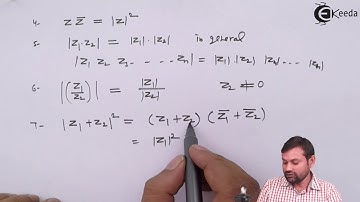 Ekeeda
4- z z̄ = |z|²
5- |z₁ z₂| = |z₁|·|z₂| in general
|z₁ z₂ z₃ - - - - zₙ| = |z₁|·|z₂|·|z₃| - - - |zₙ|
6- |(z₁/z₂)| = |z₁|/|z₂| z₂ ≠ 0
7- |z₁ + z₂|² = (z₁ + z₂) (z̄₁ + z̄₂)
= |z₁|²